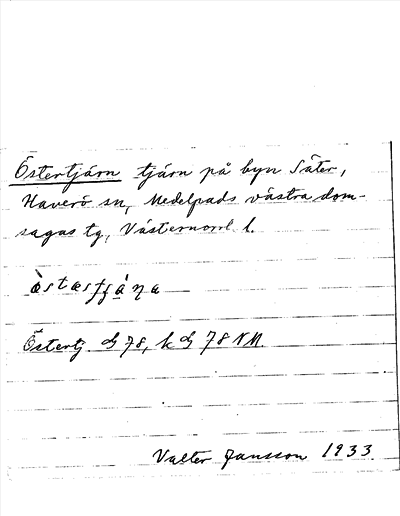 Östertjärn tjärn på byn Säter,
Haverö sn, Medelpads västra dom-
sagas tg, Västernorrl l.
Östertj d 78, k d 78 NM
Valter Jansson 1933